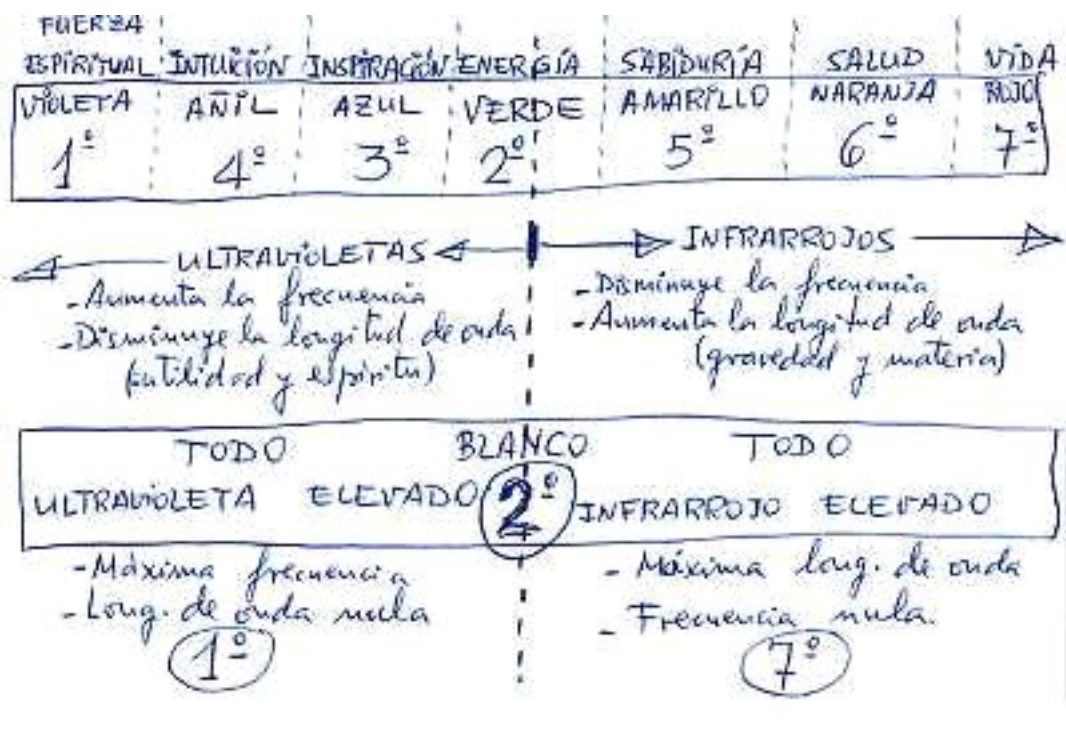 FUERZA
ESPIRITUAL INTUICIÓN INSPIRACIÓN ENERGÍA SABIDURÍA SALUD VIDA
VIOLETA AÑIL AZUL VERDE AMARILLO NARANJA ROJO
1º 4º 3º 2º 5º 6º 7º
ULTRAVIOLETAS INFRARROJOS
- Aumenta la frecuencia
- Disminuye la longitud de onda
(sutilidad y espíritu)
- Disminuye la frecuencia
- Aumenta la longitud de onda
(gravedad y materia)
TODO BLANCO TODO
ULTRAVIOLETA ELEVADO 2º INFRARROJO ELEVADO
- Máxima frecuencia
- Long. de onda nula
1º
- Máxima long. de onda
- Frecuencia nula.
7º